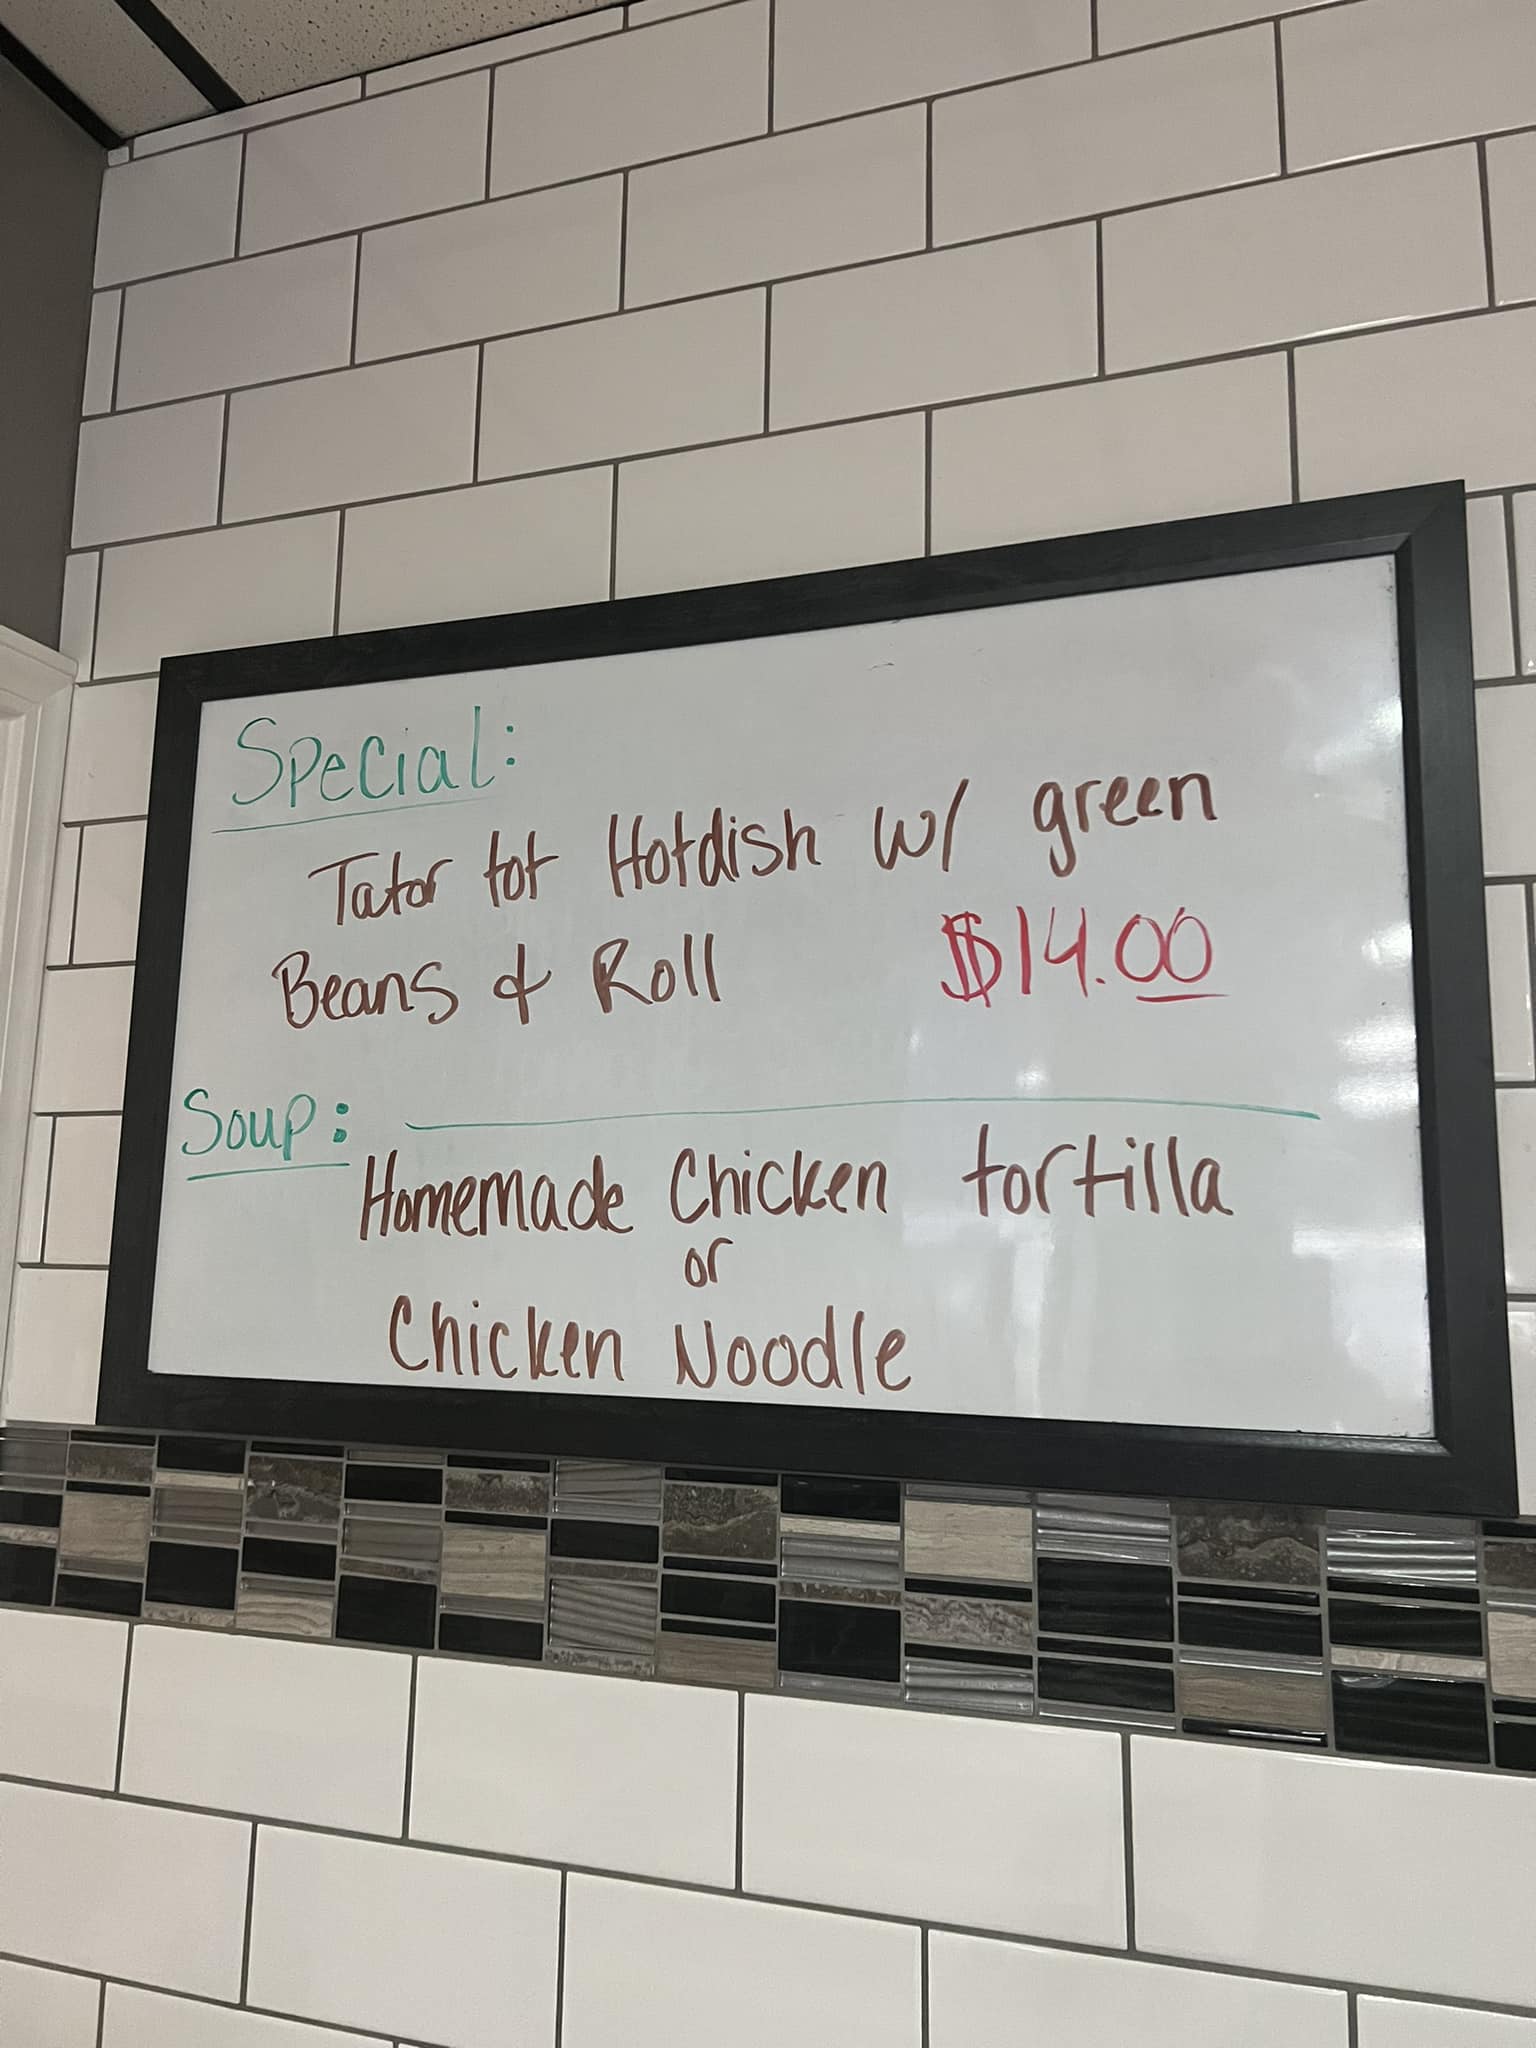 Special:
Tator tot Hotdish w/ green
Beans & Roll $14.00
Soup:
Homemade Chicken tortilla
or
Chicken Noodle